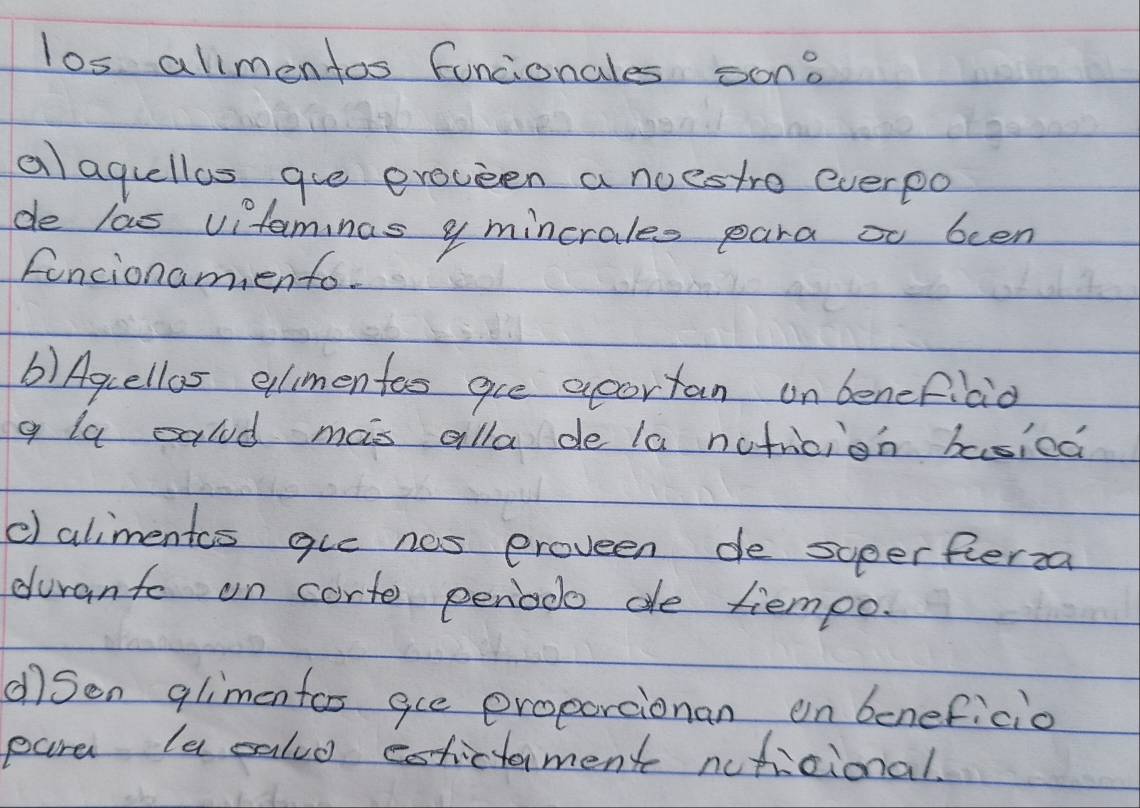 los alimentos funcionales son:
a) aquellos que provéen a nuestro cuerpo
de las vitaminas y minerales para su buen
funcionamiento.
b) Aquellos alimentos que aportan un beneficio
a la salud más alla de la nutrición basicá
c) alimentos que nos proveen de superfuerza
durante un corto período de tiempo.
d) Son alimentos que proporcionan un beneficio
para la salud estictamente nutricional.